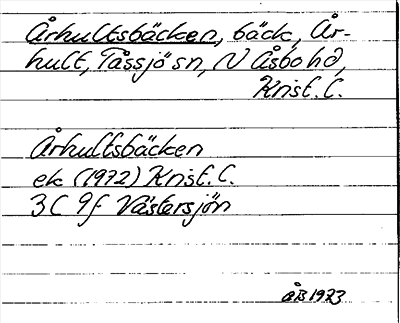 Århultsbäcken, bäck, År-
hult, Tåssjö sn, N Åsbo hd,
Krist. l.
Århultsbäcken
ek (1972) Krist. l.
3C 9f Västersjön
åB 1973